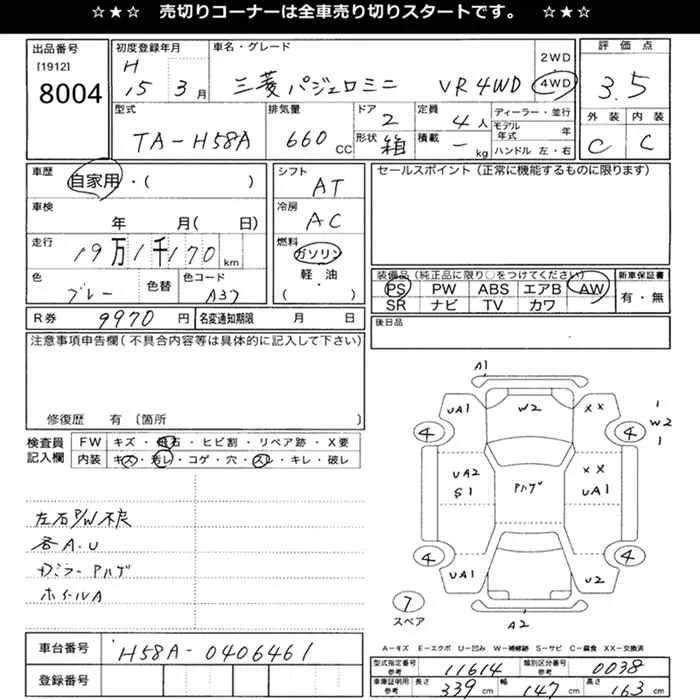 ☆★☆ 売切りコーナーは全車売り切りスタートです。 ☆★☆
出品番号
[1912]
8004
初度登録年月
H 15 3月
車名・グレード
三菱 パジェロミニ VR 4WD
2WD
4WD
評価点
3.5
外装 内装
C C
型式
TA-H58A
排気量
660 CC
ドア
2
形状
箱
定員
4人
積載
- kg
ディーラー・並行
モデル年式 年
ハンドル 左・右
車歴
自家用・( )
車検
年 月( 日)
走行
19万1千170 km
色
ブレー
色替
色コード
A37
シフト
AT
冷房
AC
燃料
ガソリン
軽・油
( ・ )
セールスポイント(正常に機能するものに限ります)
装備品(純正品に限り○をつけてください)
PS PW ABS エアB AW
SR ナビ TV カワ
新車保証書
有・無
R券 9970 円
名変通知期限 月 日
後日品
注意事項申告欄(不具合内容等は具体的に記入して下さい)
修復歴 有 〔箇所 〕
検査員記入欄
FW キズ・飛石・ヒビ割・リペア跡・X要
内装 キズ・汚レ・コゲ・穴・スレ・キレ・破レ
左右P/W不良
各A.U
カラーPハゲ
ホイールA
車台番号
H58A-0406461
登録番号
A1
UA1 W2 XX
4 4
1
W2
1
UA2
S1
Pハゲ
XX
UA1
4 4
UA1 U2
7
スペア
A2
A-キズ E-エクボ U-凹み W-補修跡 S-サビ C-腐食 XX-交換済
型式指定番号 参考 11614
類別区分番号 参考 0038
車庫証明用 参考
長さ 339 cm
幅 147 cm
高さ 163 cm